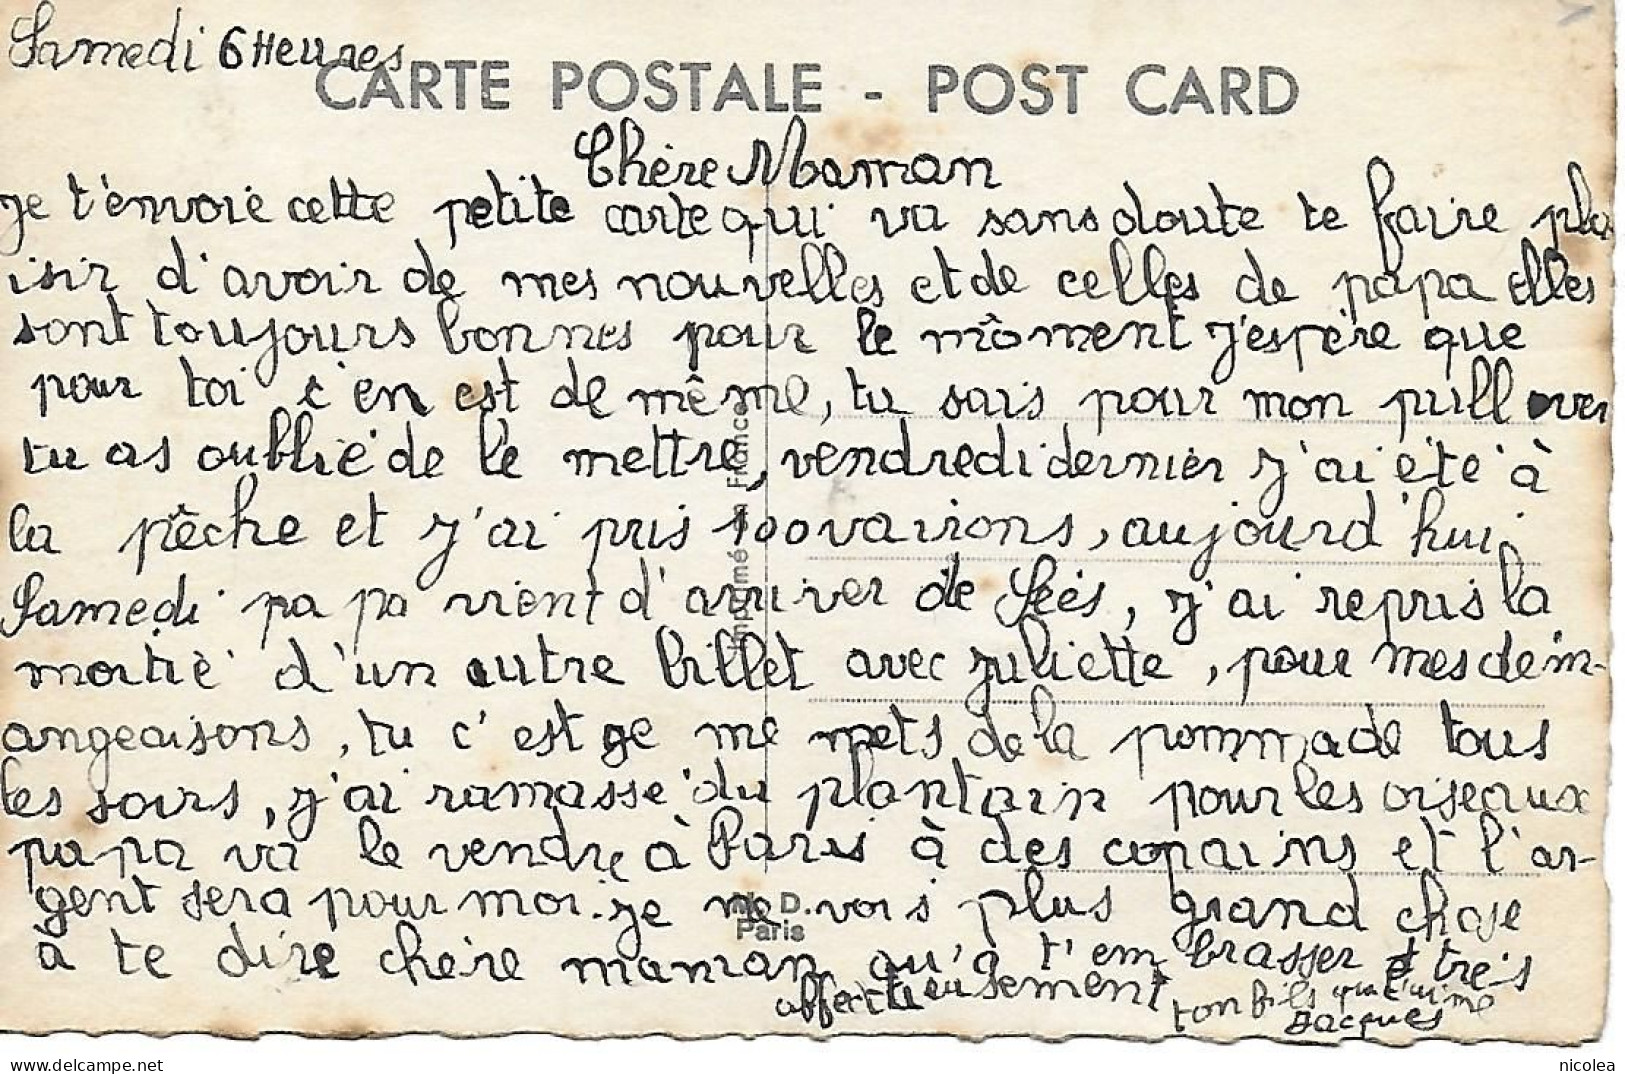 Samedi 6 Heures
CARTE POSTALE - POST CARD
Chère Maman
Je t'envoie cette petite carte qui va sans doute te faire pla
isir d'avoir de mes nouvelles et de celles de papa elles
sont toujours bonnes pour le môment j'espère que
pour toi c'en est de même, tu sais pour mon pull over
tu as oublié de le mettre, vendredi dernier j'ai été à
la pêche et j'ai pris 100 vairons, aujourd'hui
Samedi papa vient d'arriver de Sées, j'ai repris la
moitié d'un autre billet avec juliette, pour mes dém-
angeaisons, tu c'est ge me mets de la pommade tous
les soirs, j'ai ramassé du plantain pour les oiseaux
papa va le vendre à Paris à des copains et l'ar-
gent sera pour moi. je ne vois plus grand chose
à te dire chère maman qu'a t'embrasser et très
affectueusement ton fils qui t'aime
Jacques
Imprimé en France
N. D.
Paris
nicolea